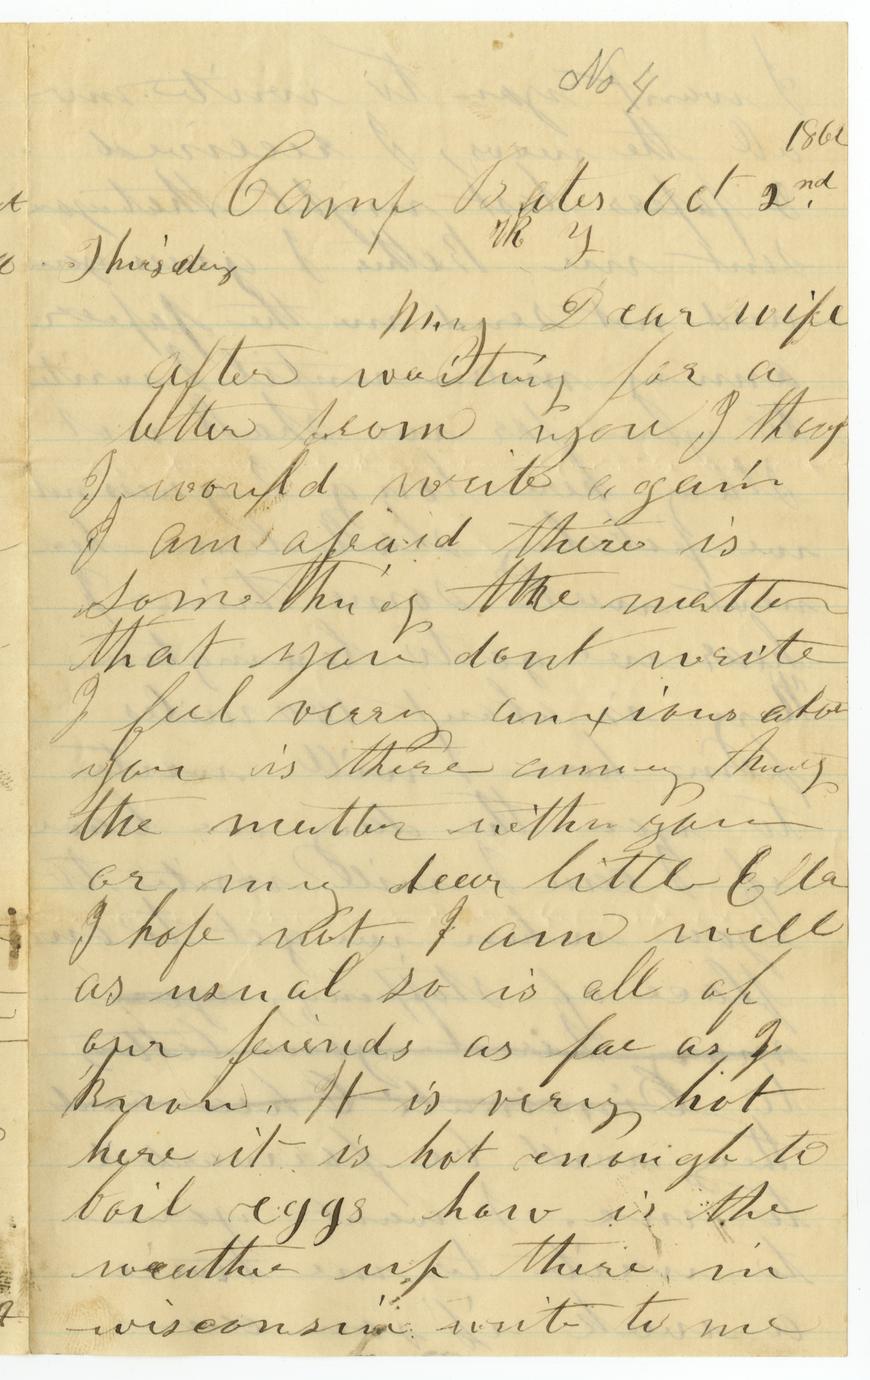 No 4
186
Camp Bates Oct 2nd.
K y
Thursday
My Dear wife
after waiting for a
letter from you I thoug
I would write again
I am afraid there is
something the matter
that you dont write
I feel verry anxious abou
you is there anny thing
the matter with you
or my dear little Ella
I hope not I am well
as usual so is all of
our friends as far as I
Know. It is verry hot
here it is hot enough to
boil eggs how is the
weather up there in
wisconsin write to me